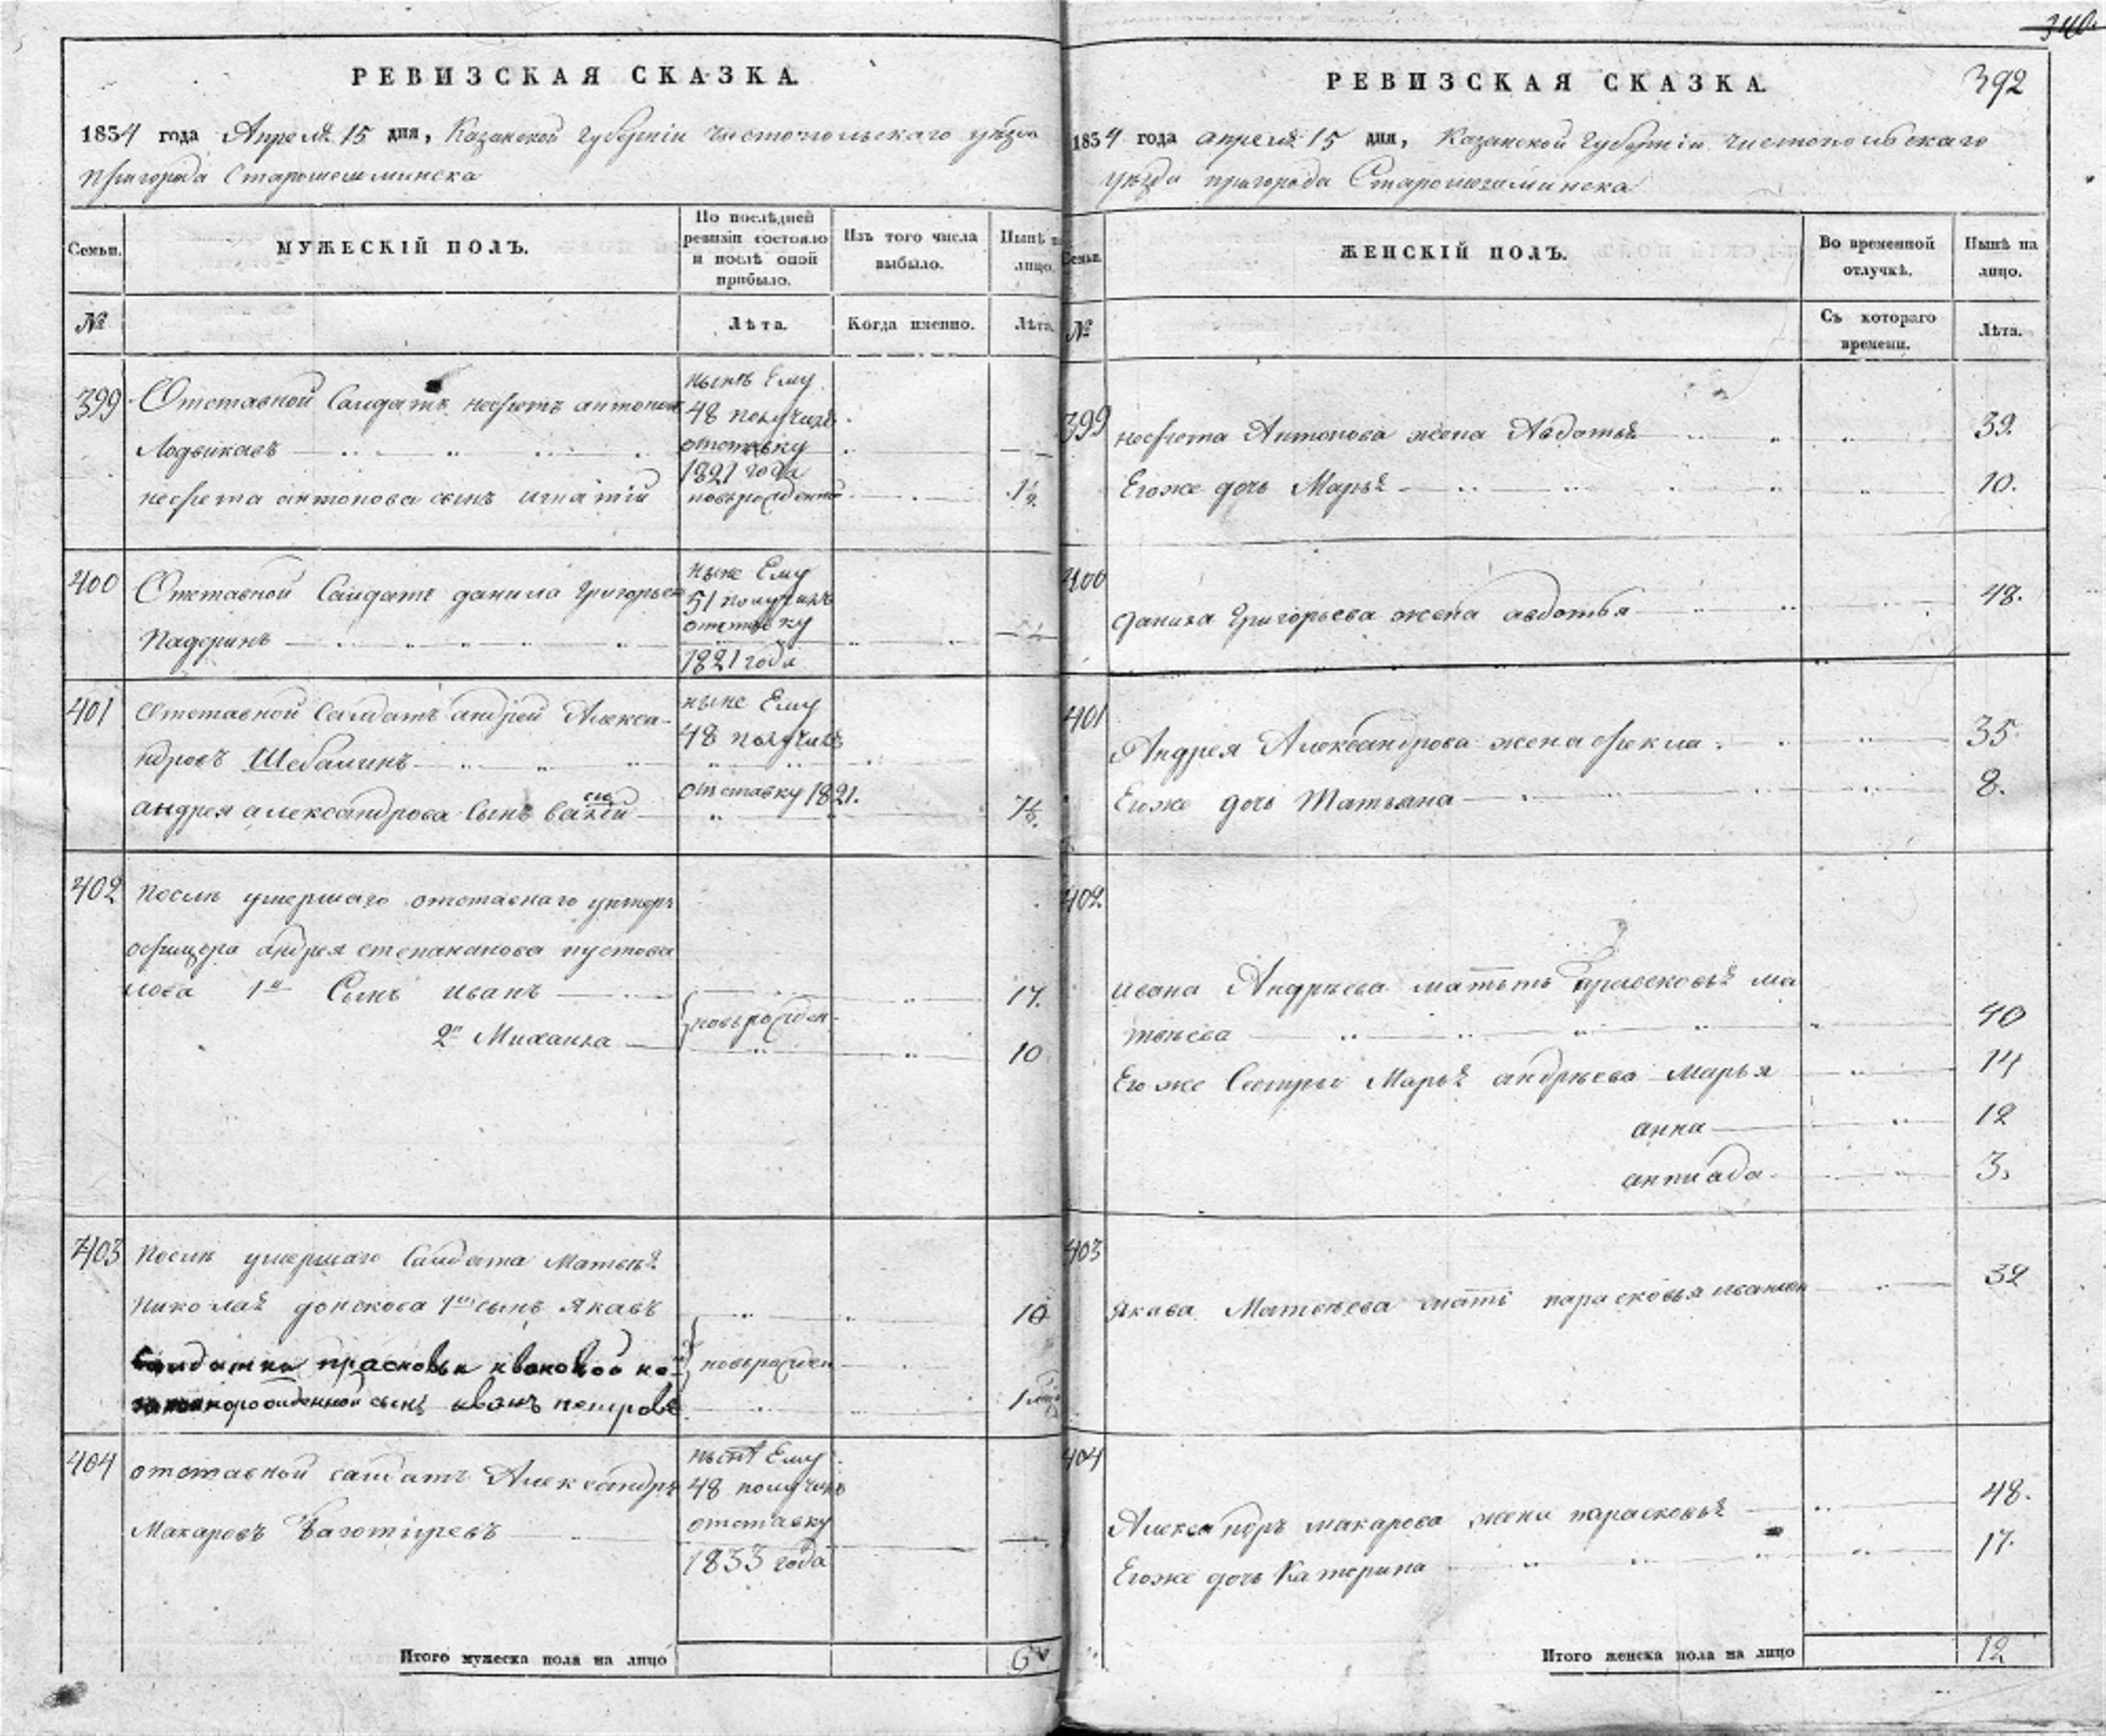 340
РЕВИЗСКАЯ СКАЗКА.
1834 года Апреля 15 дня, Казанской Губернiи Чистопольскаго уѣзда
пригорода Старошешминска
Семьи.
МУЖЕСКIЙ ПОЛЪ.
По послѣдней ревизiи состояло и послѣ оной прибыло.
Изъ того числа выбыло.
Нынѣ на лицо.
№
Лѣта.
Когда именно.
Лѣта.
399
Отставной Салдатъ нефетъ антоновъ
нынѣ Ему
48 получилъ
отставку
1821 года
нефета антонова сынъ игнатiй
новърожденной
1½
400
Отставной Салдатъ данила Григорьевъ
Падеринъ
ныне Ему
51 получилъ
отставку
1821 года
401
Отставной Салдатъ андрей Алекса-
ндровъ Шебалинъ
ныне Ему
48 получилъ
отставку 1821.
андрея александрова Сынъ
402
послѣ умершаго отставнаго унтеръ
офицера андрея степананова пустова
лова 1й Сынъ иванъ
17.
2й Михаила
новърожден.
10
403
послѣ умершаго Салдата Матвѣя
николая донскова 1й сынъ якавъ
10
Салдатки прасковьи ивановой не-
новърожден
законорожденной сынъ иванъ петровъ
1
404
отставной салдатъ Александръ
Макаровъ
нынѣ Ему
48 получилъ
отставку
1833 года
Итого мужеска пола на лицо
6
РЕВИЗСКАЯ СКАЗКА.
392
1834 года апреля 15 дня, Казанской Губернiи Чистопольскаго
уѣзда пригорода Старошешминска
Семьи.
ЖЕНСКIЙ ПОЛЪ.
Во временной отлучкѣ.
Нынѣ на лицо.
№
Съ котораго времени.
Лѣта.
399
нефета Антонова жена Авдотья
39.
Егоже дочь Марья
10.
400
данила Григорьева жена авдотья
48.
401
Андрея Александрова жена фекла
35.
Егоже дочь Татьяна
8.
402
ивана Андрѣева мать Прасковья ма
твѣева
40
Егоже Сестры Марья андрѣева Марья
14
анна
12
3.
403
якава Матвѣева мать парасковья иванова
32
404
Александръ макарова жена парасковья
48.
Егоже дочь Катерина
17.
Итого женска пола на лицо
12